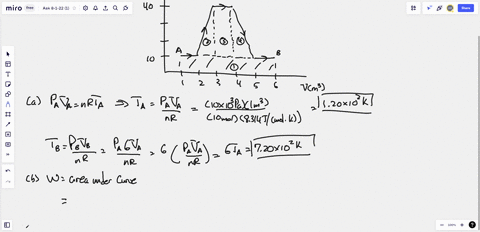 miro
free
Ask 8-1-22 (1)
Share
40
10
A
B
② ③ ④
①
1 2 3 4 5 6
V(m³)
(a) P_A V_A = nRT_A ⇒ T_A = P_A V_A / nR = (10x10³Pa)(1m³) / (10mol)(8.314J/(mol·K)) = 1.20x10² K
T_B = P_B V_B / nR = P_A 6V_A / nR = 6 (P_A V_A / nR) = 6T_A = 7.20x10² K
(b) W = area under curve
=